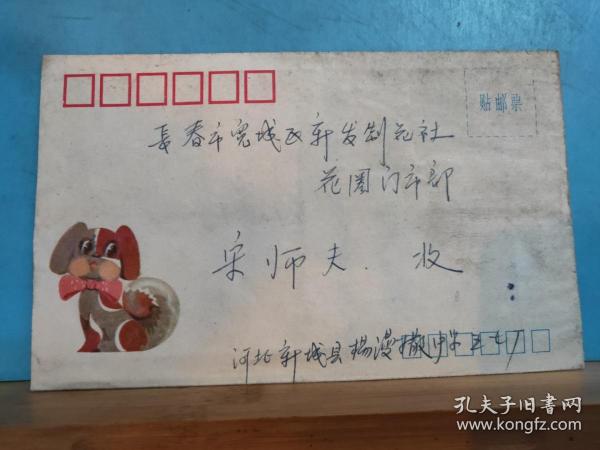 贴邮票
長春市宽城区新发制花社
花圈门市部
宋师夫. 收
河北新城县杨漫撒
孔夫子旧书网
www.kongfz.com